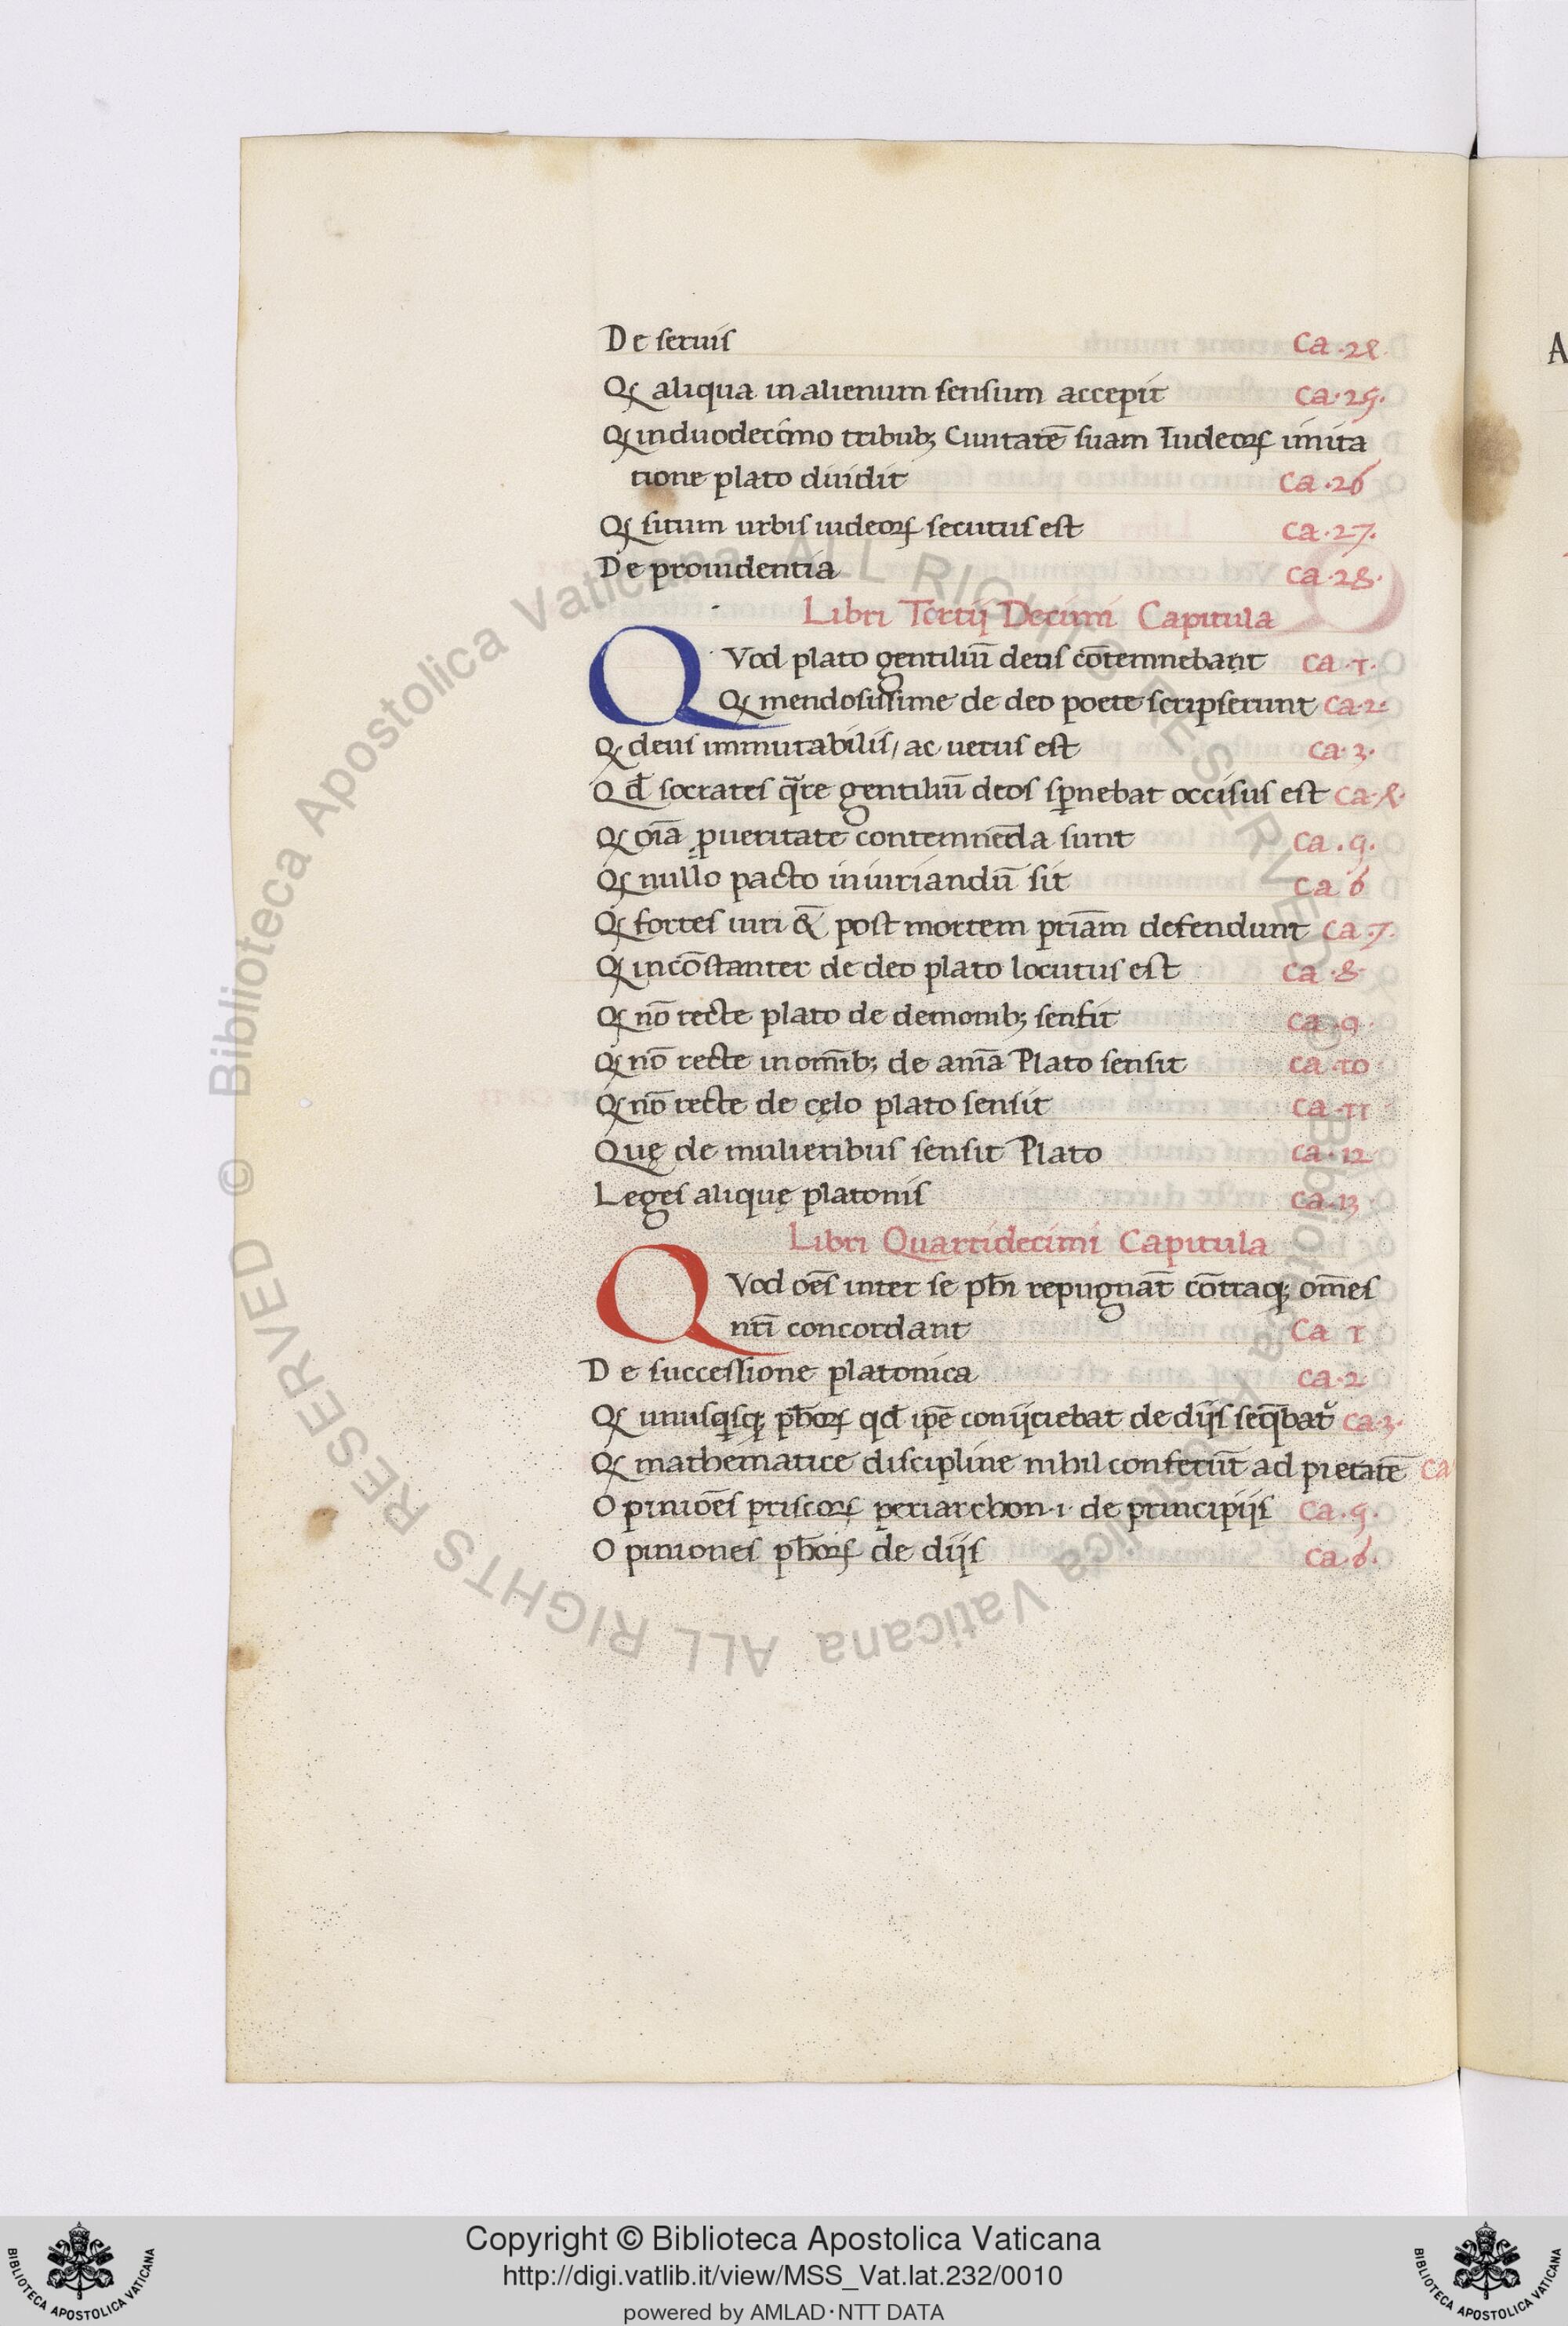 De seruis ca.2ꝝ.
Qꝫ aliqua in alienum sensum accepit ca.25.
Qꝫ in duodecimo tribubꝫ Ciuitatē suam Iudeoꝝ imita
tione plato diuidit ca.26
Qꝫ situm urbis iudeoꝝ secutus est ca.27.
De prouidentia ca.28.
Libri Tertij Decimi Capitula
QVod plato gentiliū deus cōtemnebant ca.1.
Qꝫ mendosissime de deo poete scripserunt ca.2.
Qꝫ deus immutabilis/ ac uerus est ca.3.
Qđ socrates qᷓre gentiliū deos sp̄nebat occisus est ca.ꝝ.
Qꝫ oīa p̱ueritate contemnēda sunt ca.5.
Qꝫ nullo pacto iniuriandū sit ca 6
Qꝫ fortes uiri & post mortem priām defendunt ca.7.
Qꝫ incōstanter de deo plato locutus est ca.8.
Qꝫ nō recte plato de demonibꝫ sensit ca.9.
Qꝫ nō recte in om̄ibꝫ de aīma Plato sensit ca.10
Qꝫ nō recte de cęlo plato sensit ca.11
Quę de mulieribus sensit Plato ca.12
Leges alique platonis ca.13
Libri Quartidecimi Capitula
QVod oēs inter se ph̄i repugnāt cōtraqꝫ om̄es
nr̄i concordant Ca 1
De successione platonica ca.2
Qꝫ unusqisqꝫ ph̄oꝝ qd ip̄e conijciebat de dijs seq̄bat᷑ ca.3.
Qꝫ mathematice discipline nihil conferūt ad pietatē ca
Opiniōes priscoꝝ periarchon.i. de principijs ca.5.
Opiniones ph̄oꝝ de dijs ca.6.
A
© Biblioteca Apostolica Vaticana ALL RIGHTS RESERVED
© Biblioteca Apostolica Vaticana ALL RIGHTS RESERVED
Copyright © Biblioteca Apostolica Vaticana
http://digi.vatlib.it/view/MSS_Vat.lat.232/0010
powered by AMLAD·NTT DATA
BIBLIOTECA APOSTOLICA VATICANA
BIBLIOTECA APOSTOLICA VATICANA